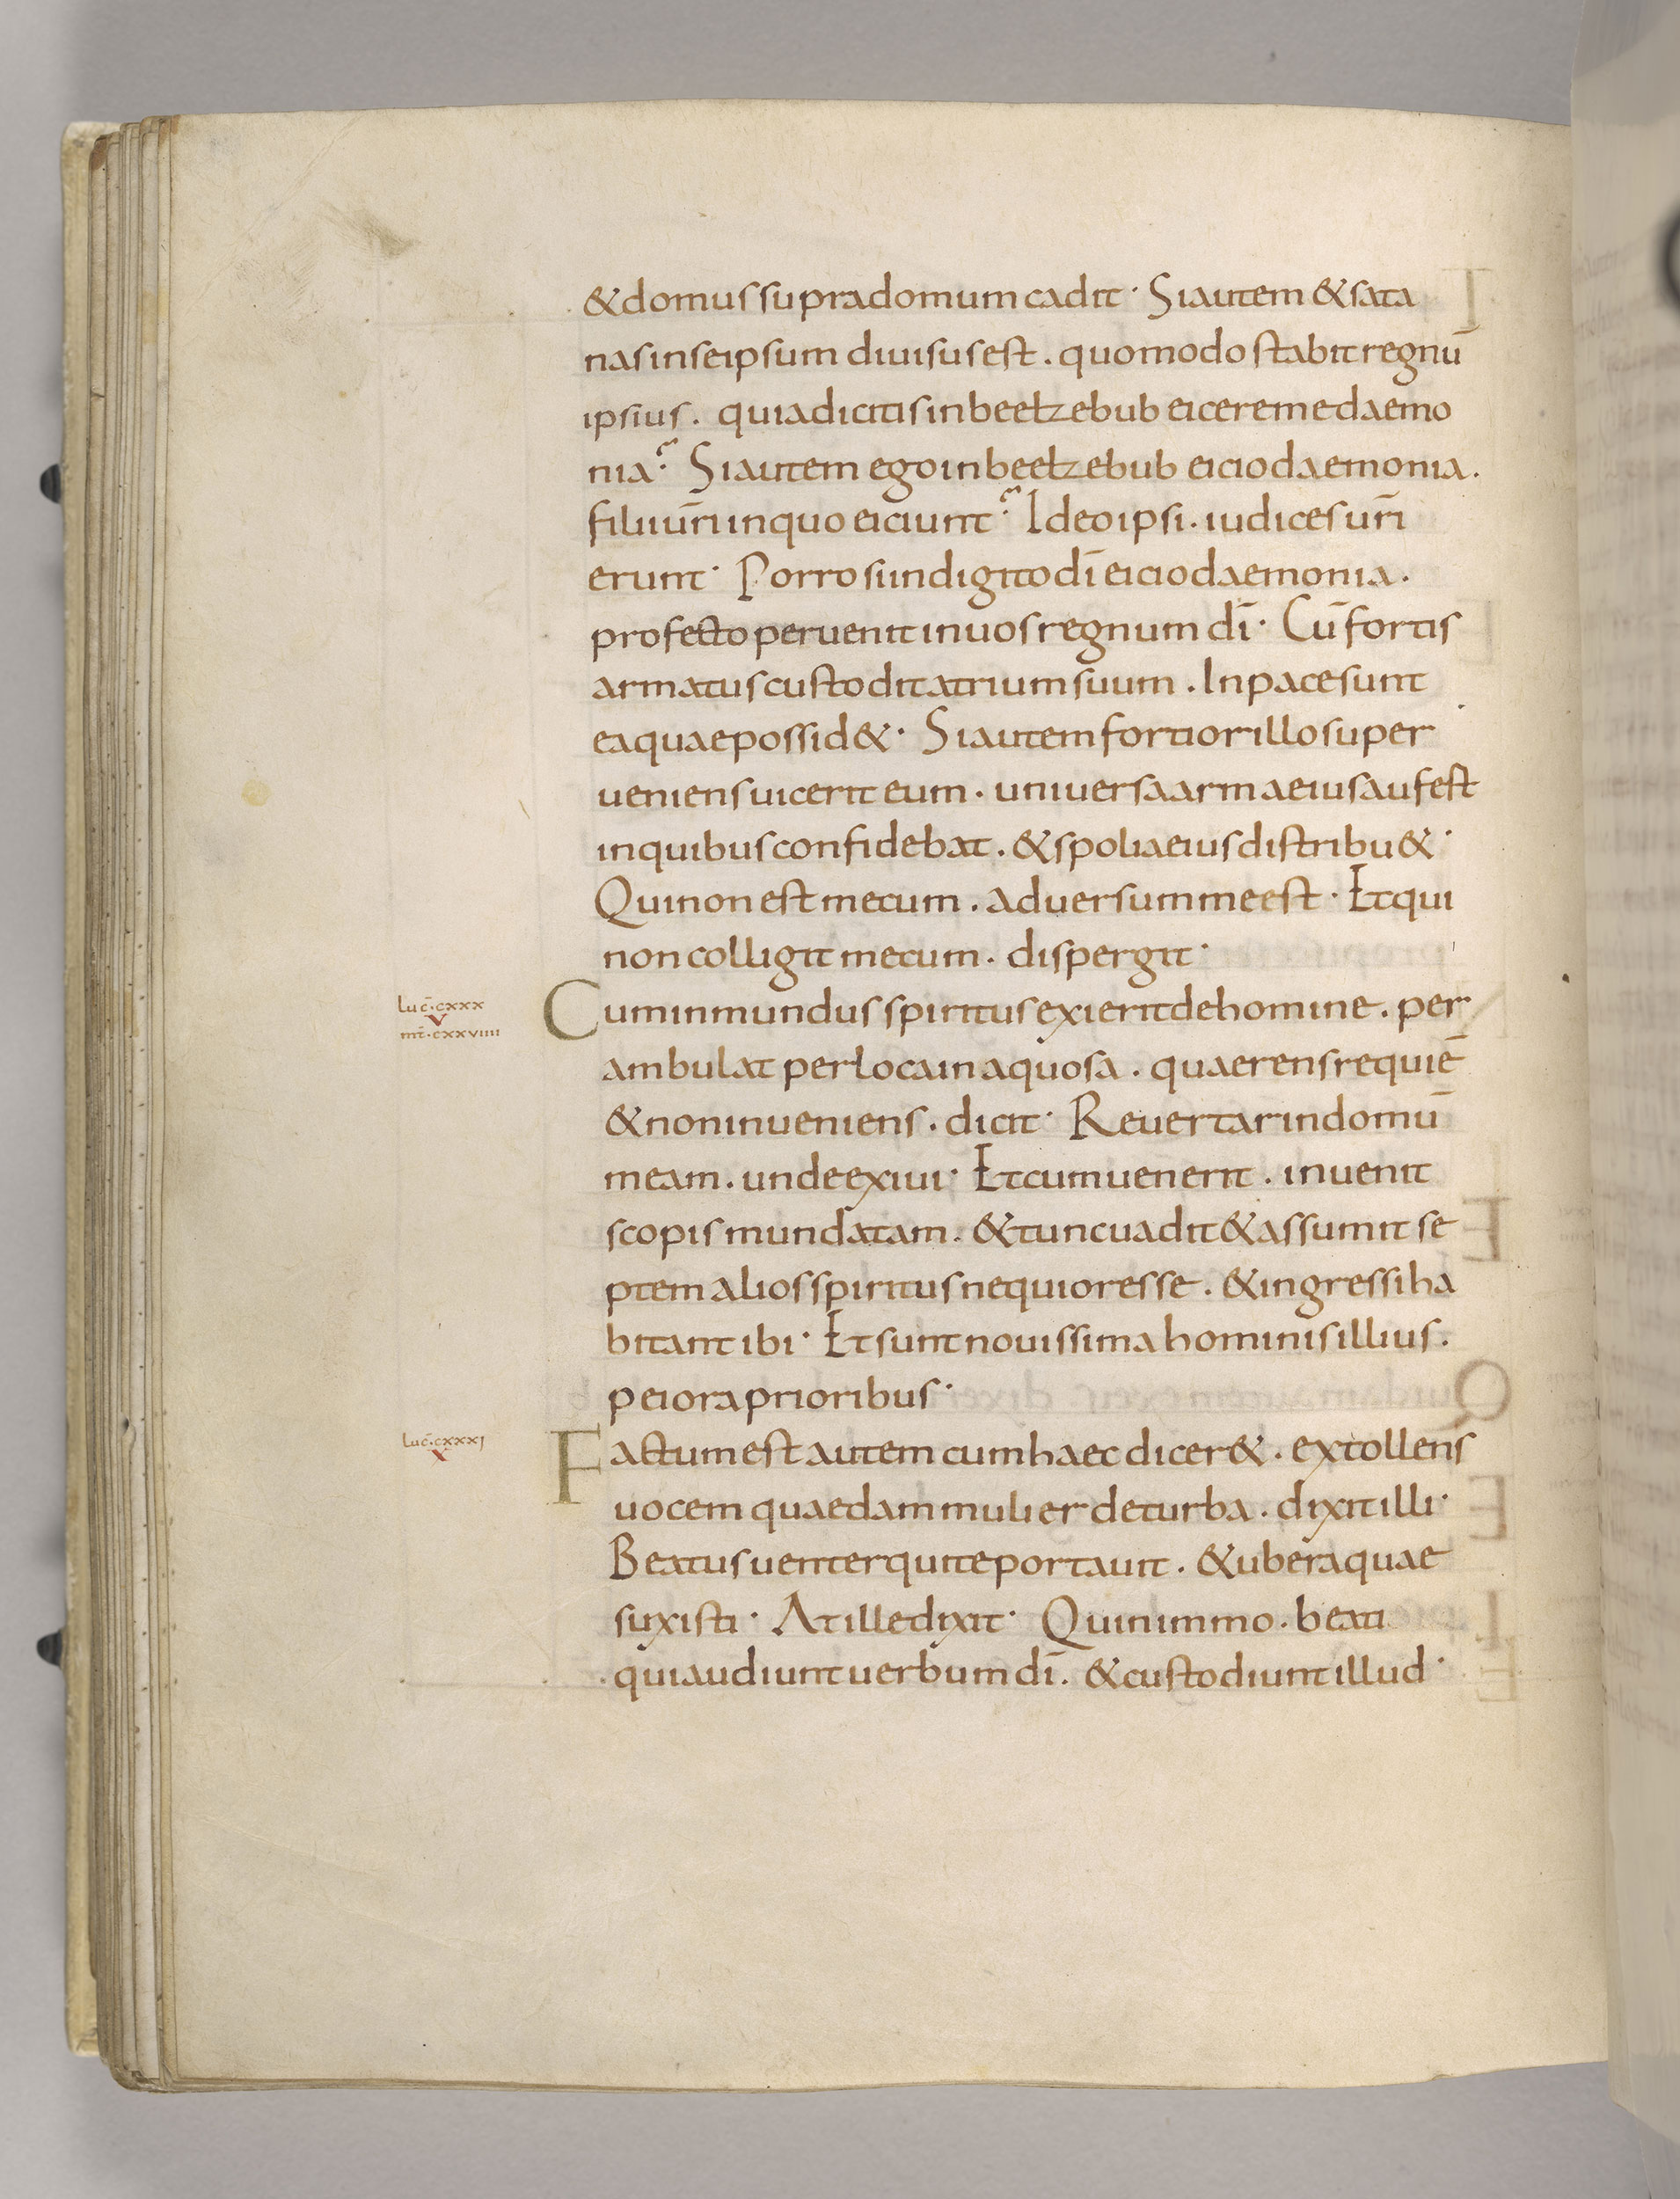 & domus supra domum cadit· Si autem & sata
nas in seipsum diuisus est. quomodo stabit regnū
ipsius. quia dicitis in beelzebub eicere me daemo
nia? Si autem ego in beelzebub eicio daemonia.
filii ur̄i in quo eiciunt? Ideo ipsi. iudices ur̄i
erunt· Porro si in digito dī eicio daemonia.
profecto peruenit in uos regnum dī· Cū fortis
armatus custodit atrium suum. In pace sunt
ea quae possid&· Si autem fortior illo super
ueniens uicerit eum. uniuersa arma eius aufest
in quibus confidebat. & spolia eius distribu&·
Qui non est mecum. aduersum me est· Et qui
non colligit mecum. dispergit·
luc̄·cxxx
v
mt̄·cxxviiii
Cum inmundus spiritus exierit de homine. per
ambulat per loca inaquosa. quaerens requiē
& non inueniens. dicit· Reuertar in domū
meam. unde exiui· Et cum uenerit. inuenit
scopis mundatam. & tunc uadit & assumit se
ptem alios spiritus nequiores se. & ingressi ha
bitant ibi· Et sunt nouissima hominis illius.
peiora prioribus·
luc̄·cxxxj
x
Factum est autem cum haec dicer&. extollens
uocem quaedam mulier de turba. dixit illi·
Beatus uenter qui te portauit. & ubera quae
suxisti· At ille dixit· Quinimmo. beati
qui audiunt uerbum dī. & custodiunt illud·